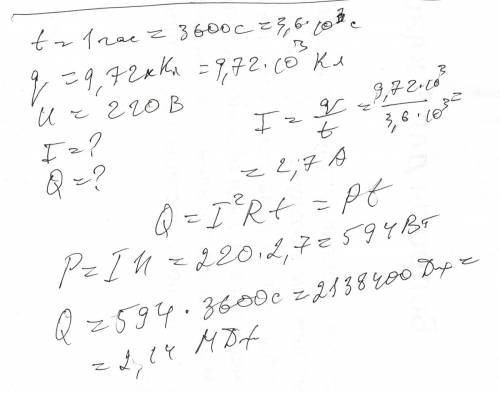 t = 1 час = 3600с = 3,6·10³ с
q = 9,72 кКл = 9,72·10³ Кл
U = 220 В
I = ?
Q = ?
I = q/t = 9,72·10³/3,6·10³ =
= 2,7 А
Q = I²Rt = Pt
P = IU = 220·2,7 = 594 Вт
Q = 594·3600с = 2138400 Дж =
= 2,14 МДж